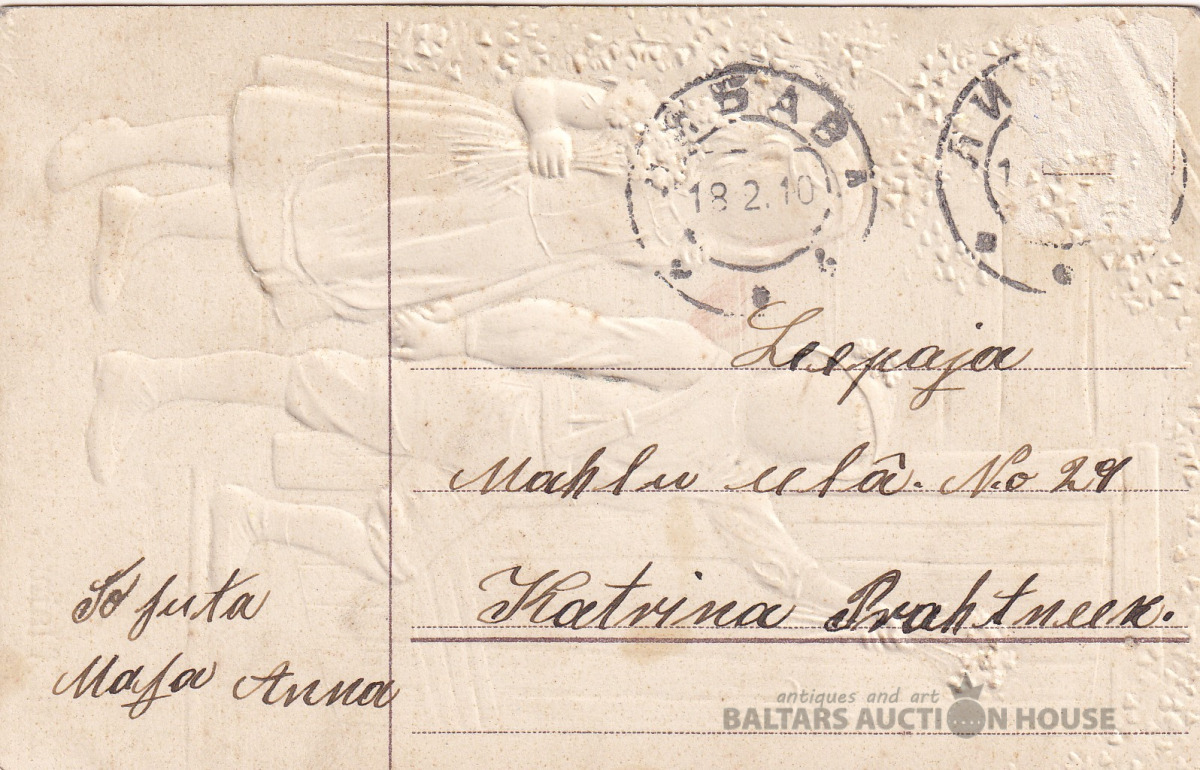 18 2.10
Leepaja
Mahlu eelâ. No 29
Katrina Prahtneek.
To ſuta
Maſa Anna
antiques and art
BALTARS AUCTION HOUSE